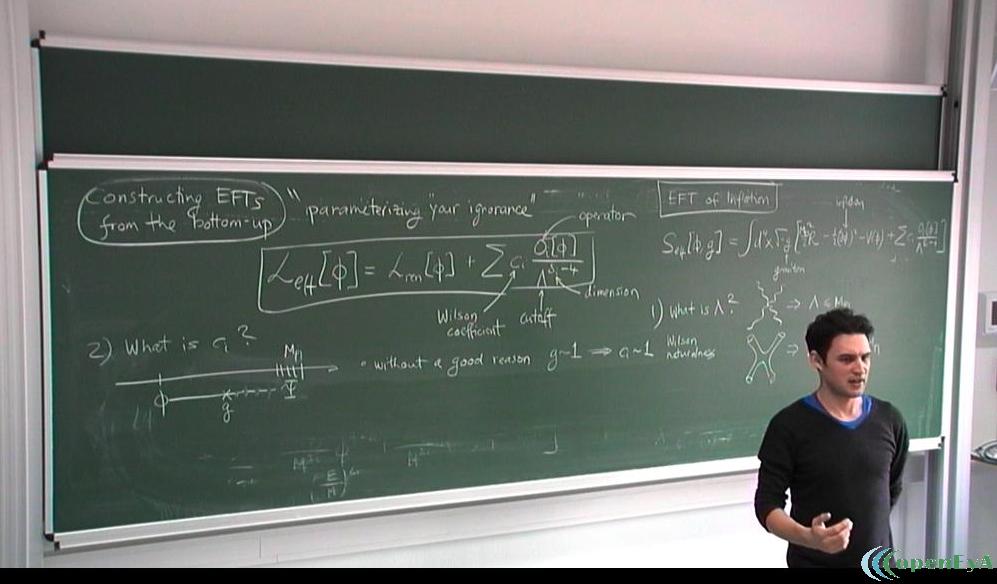 Constructing EFTs
from the bottom-up
"parameterizing "your ignorance"
operator
L_eff[ϕ] = L_ren[ϕ] + ∑ c_i O_i[ϕ] / Λ^(δ_i-4)
Wilson
coefficient
cutoff
dimension
2) What is c_i?
M_pl
ϕ
g
Ψ
• without a good reason g~1 ⇒ c_i~1
Wilson
naturalness
EFT of Inflation
inflaton
S_eff[ϕ,g] = ∫d⁴x √-g [
graviton
1) What is Λ?
⇒ Λ
⇒
CopenEyA